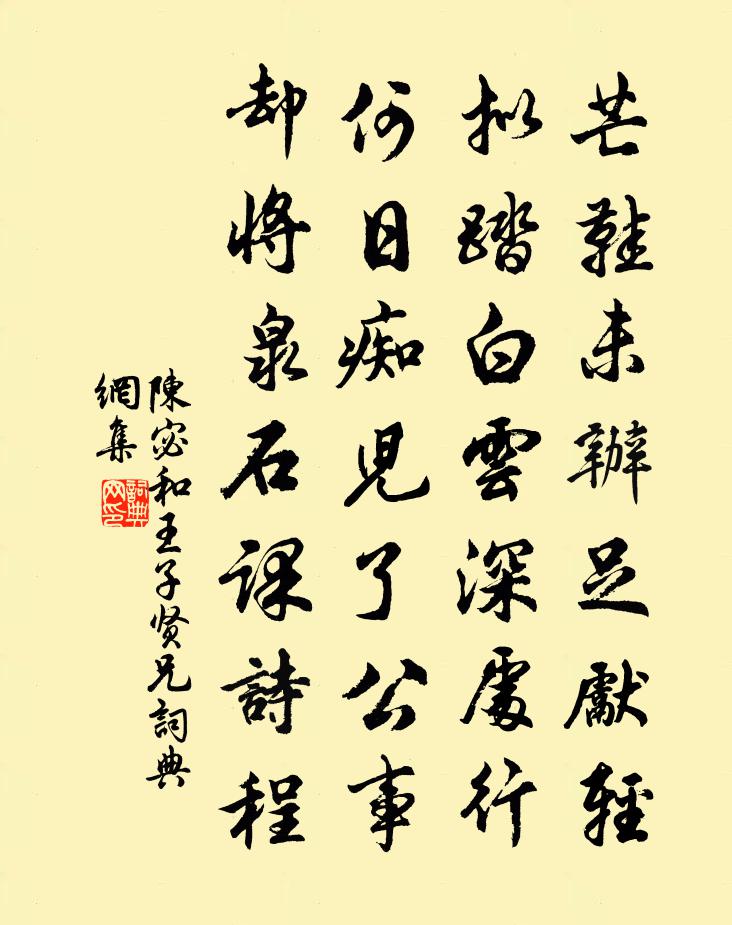 芒鞋未辦足獻輕
拟踏白雲深處行
何日痴児了公事
却將泉石課詩程
陳宓和王子贤兄詞典
網集
詞典
网印